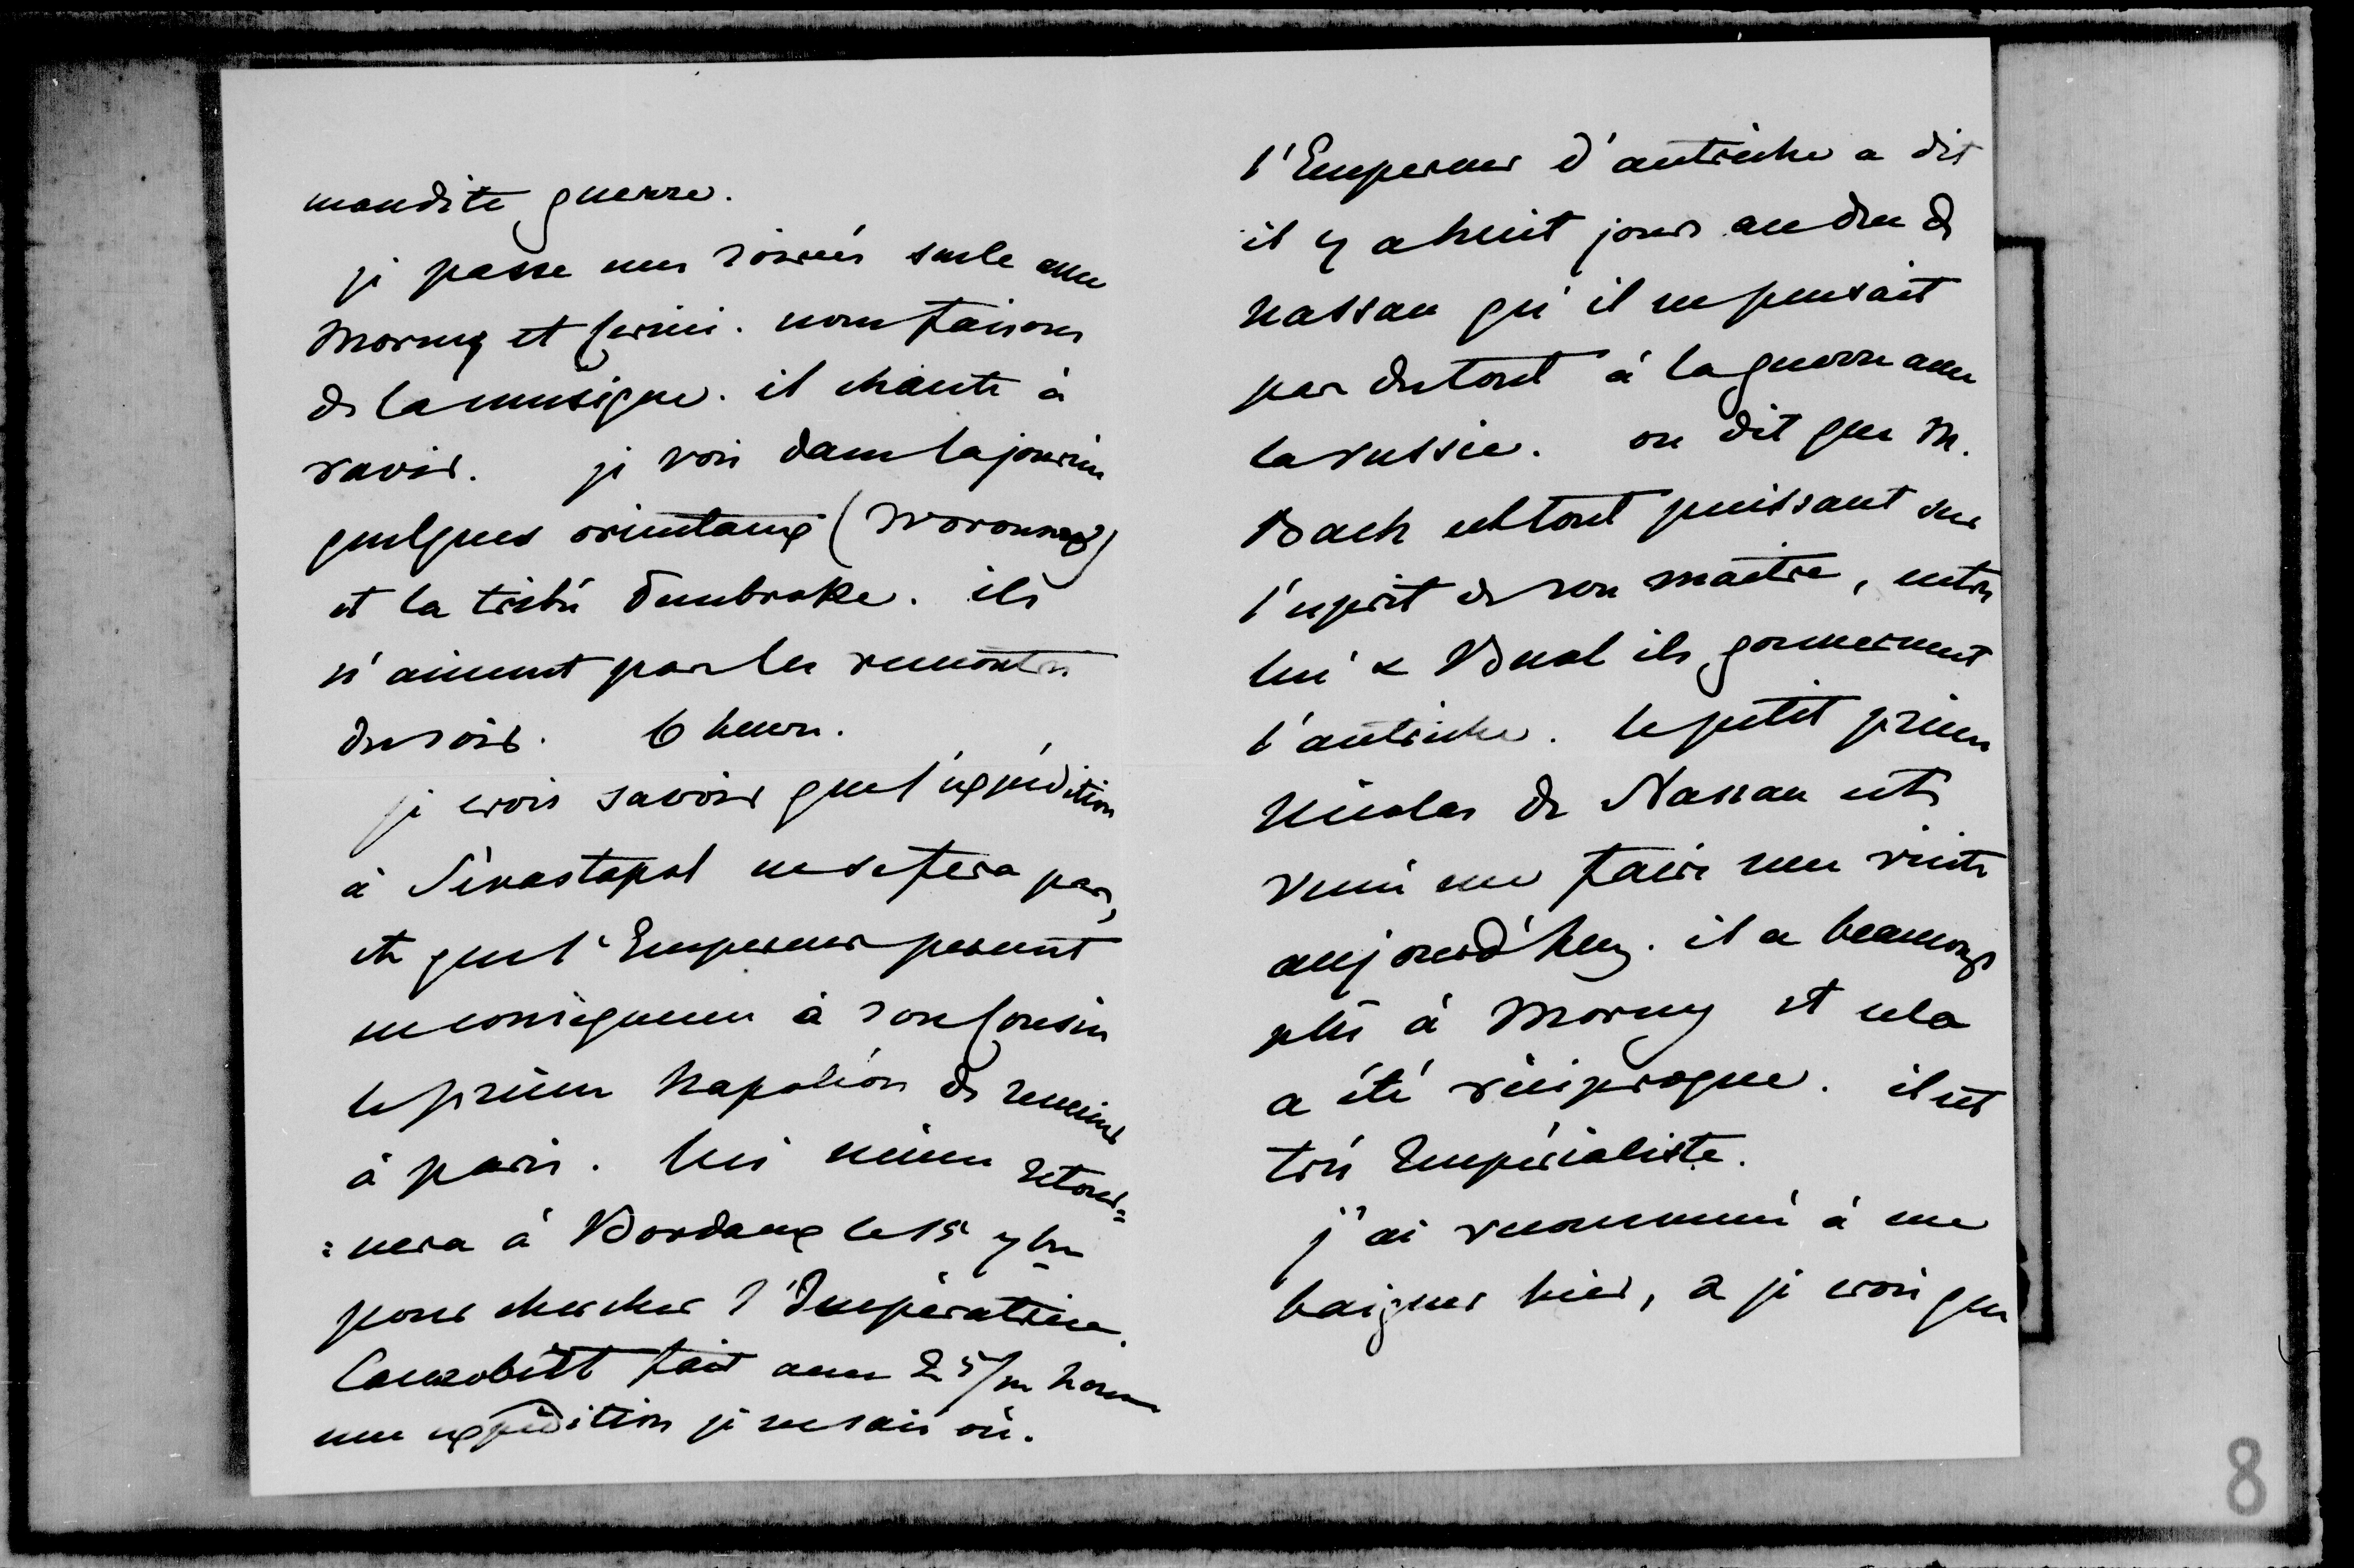 maudite guerre.
je passe mes soirées seule avec
Morny et Cerini. nous faisons
de la musique. il chante à
ravir. je vois dans la journée
quelques orientaux (Woronzoff)
et la tribu Dembroke. ils
n'aiment pas les rencontres
du soir. 6 heures.
je crois savoir que l'expédition
à Sévastopol ne se fera pas,
et que l'Empereur prescrit
en conséquence à son Cousin
le prince Napoléon de revenir
à paris. lui même retour=
=nera à Bordeaux le 15 7bre
pour chercher l'Impératrice.
Canrobert fait avec 25/m hom
une expédition je ne sais où.
l'Empereur d'autriche a dit
il y a huit jours au duc de
Nassau qu'il ne pensait
pas du tout à la guerre avec
la russie. on dit que M.
Bach est tout puissant sur
l'esprit de son maître, entre
lui & Bual ils gouvernent
l'autriche. le petit prince
Nicolas de Nassau est
venu me faire une visite
aujourd'huy. il a beaucoup
plû à Morny et cela
a été réciproque. il est
très Impérialiste.
j'ai recommencé à me
baigner hier, & je crois que
8